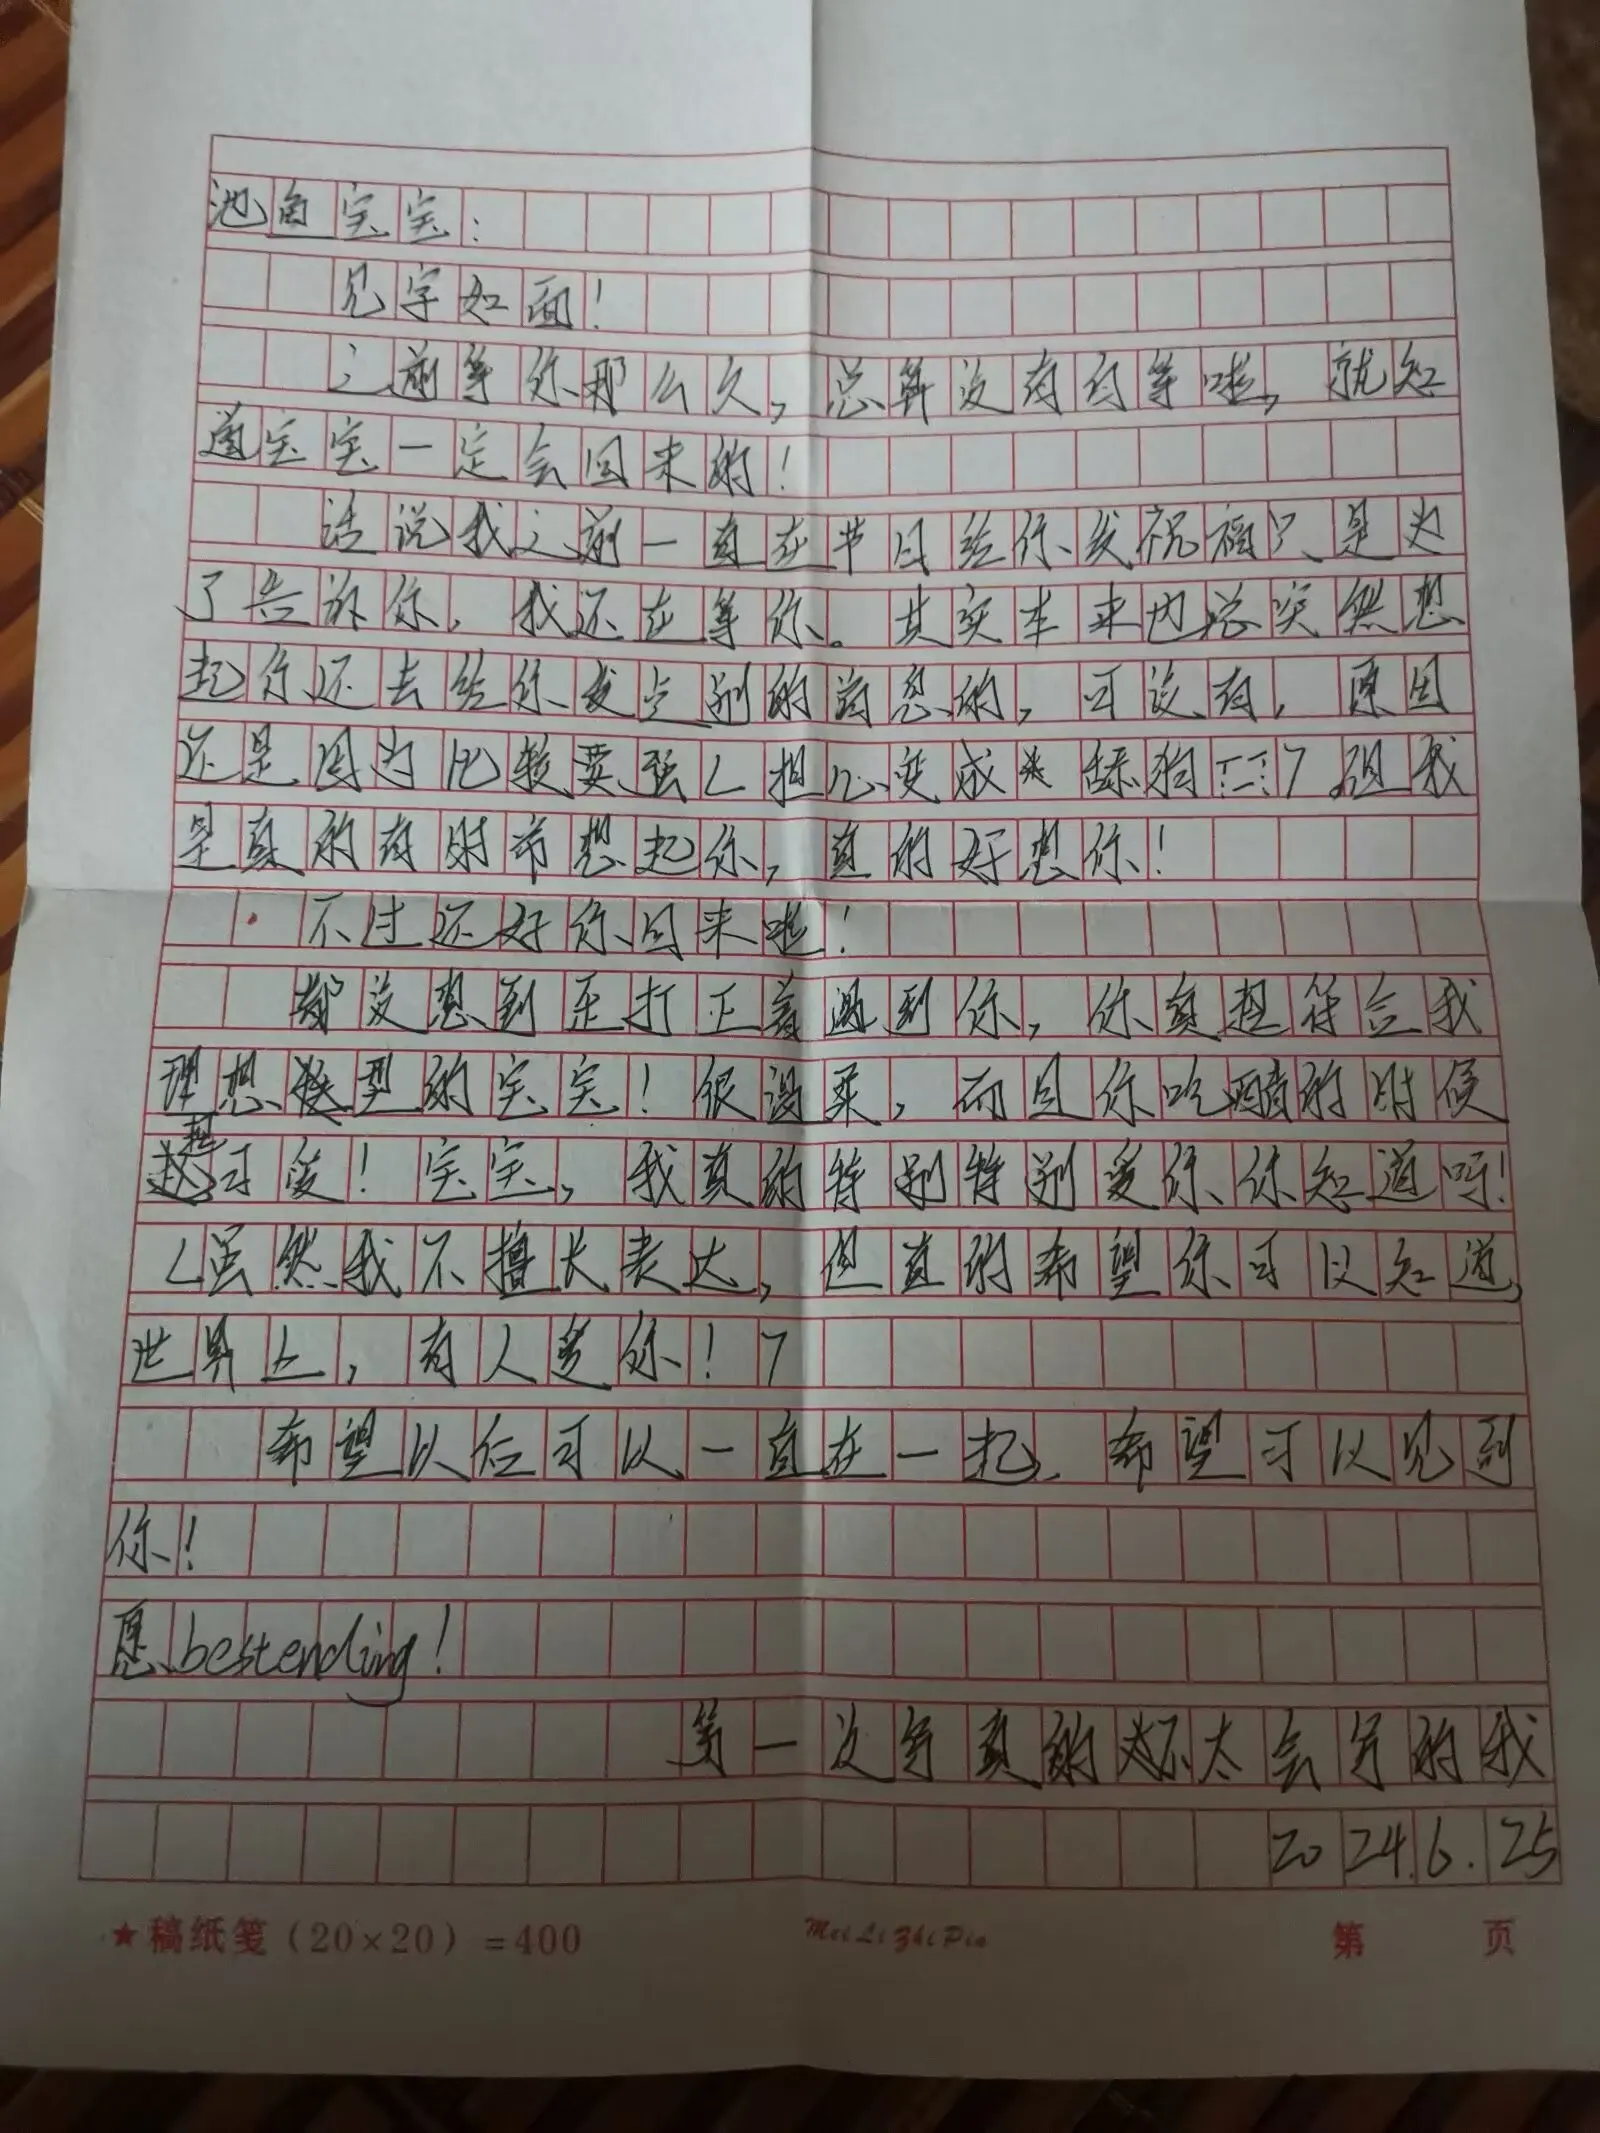 池鱼宝宝:
见字如面!
之前等你那么久,总算没有白等啦,就知
道宝宝一定会回来的!
话说我之前一直在节日给你发祝福只是为
了告诉你,我还在等你。其实本来内总突然想
起你还去给你发点别的消息的,可没有,原因
还是因为比较要强(担心变成舔狗)。但我
是真的有时常想起你,真的好想你!
不过还好你回来啦!
都没想到歪打正着遇到你,你真挺符合我
理想模型的宝宝!很温柔,而且你吃醋的时候
挺可爱!宝宝,我真的特别特别爱你你知道吗!
(虽然我不擅长表达,但真的希望你可以知道,
世界上,有人爱你!)
希望以后可以一直在一起,希望可以见到
你!
愿bestending!
第一次写真的不太会写的我
2024.6.25
★稿纸笺(20×20)=400 Mei Li Zhi Pin 第 页